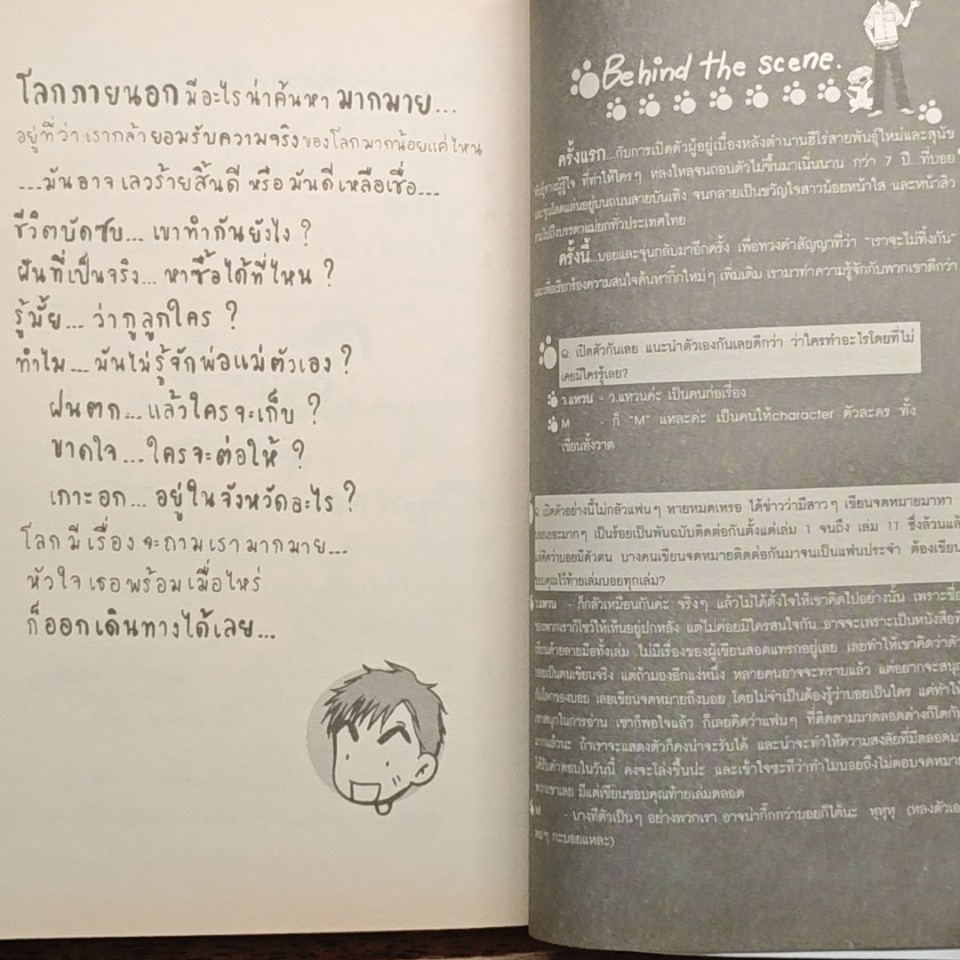 โลกภายนอก มีอะไรน่าค้นหา มากมาย...
อยู่ที่ว่า เรากล้ายอมรับความจริง ของโลกมากน้อยแค่ไหน
...มันอาจเลวร้ายสิ้นดี หรือ มันดีเหลือเชื่อ...
ชีวิตบัดซบ... เขาทำกันยังไง ?
ฝันที่เป็นจริง... หาซื้อได้ที่ไหน ?
รู้มั้ย... ว่ากูลูกใคร ?
ทำไม... มันไม่รู้จักพ่อแม่ตัวเอง ?
ฝนตก... แล้วใครจะเก็บ ?
ขาดใจ... ใครจะต่อให้ ?
เกาะอก... อยู่ในจังหวัดอะไร ?
โลกมีเรื่องจะถามเรามากมาย...
หัวใจเธอพร้อมเมื่อไหร่
ก็ออกเดินทางได้เลย...
Behind the scene.
ครั้งแรก...กับการเปิดตัวผู้อยู่เบื้องหลังตำนานฮีโร่สายพันธุ์ใหม่และสุนัข
ที่ทำให้ใครๆ หลงใหลจนถอนตัวไม่ขึ้นมาเนิ่นนาน กว่า 7 ปี...ที่บอย
อยู่บนถนนสายบันเทิง จนกลายเป็นขวัญใจสาวน้อยหน้าใส และหน้าสิว
รวมไปถึงบรรดาแม่ยกทั่วประเทศไทย
ครั้งนี้...บอยและขุ่นกลับมาอีกครั้ง เพื่อทวงคำสัญญาที่ว่า "เราจะไม่ทิ้งกัน"
และเพื่อเรียกร้องความสนใจค้นหากิ๊กใหม่ๆ เพิ่มเติม เรามาทำความรู้จักกับพวกเขาดีกว่า
Q: เปิดตัวกันเลย แนะนำตัวเองกันเลยดีกว่า ว่าใครทำอะไรโดยที่ไม่
เคยมีใครรู้เลย?
ว.แหวน - ว.แหวนค่ะ เป็นคนก่อเรื่อง
M - ก็ "M" แหละค่ะ เป็นคนให้character ตัวละคร ทั้ง
เขียนทั้งวาด
Q: เปิดตัวอย่างนี้ไม่กลัวแฟนๆ หายหมดเหรอ ได้ข่าวว่ามีสาวๆ เขียนจดหมายมาหา
เยอะมากๆ เป็นร้อยเป็นพันฉบับติดต่อกันตั้งแต่เล่ม 1 จนถึง เล่ม 11 ซึ่งล้วนแล้
คิดว่าบอยมีตัวตน บางคนเขียนจดหมายติดต่อกันมาจนเป็นแฟนประจำ ต้องเขียน
ขอบคุณไว้ท้ายเล่มบอยทุกเล่ม?
ว.แหวน - ก็กลัวเหมือนกันค่ะ จริงๆ แล้วไม่ได้ตั้งใจให้เขาคิดไปอย่างนั้น เพราะชื่อ
ของพวกเราก็โชว์ให้เห็นอยู่ปกหลัง แต่ไม่ค่อยมีใครสนใจกัน อาจจะเพราะเป็นหนังสือที่
เขียนด้วยลายมือทั้งเล่ม ไม่มีเรื่องของผู้เขียนสอดแทรกอยู่เลย เลยทำให้เขาคิดว่าตัว
บอยเป็นคนเขียนจริง แต่ถ้ามองอีกแง่หนึ่ง หลายคนอาจจะทราบแล้ว แต่อยากจะสนุก
กับโลกของบอย เลยเขียนจดหมายถึงบอย โดยไม่จำเป็นต้องรู้ว่าบอยเป็นใคร แค่ทำให้
เขาสนุกในการอ่าน เขาก็พอใจแล้ว ก็เลยคิดว่าแฟนๆ ที่ติดตามมาตลอดต่างก็โตกัน
มากแล้วนะ ถ้าเราจะแสดงตัวก็คงน่าจะรับได้ และน่าจะทำให้ความสงสัยที่มีตลอดมา
ได้รับคำตอบในวันนี้ คงจะโล่งขึ้นน่ะ และเข้าใจซะทีว่าทำไมบอยถึงไม่ตอบจดหมาย
พวกเขาเลย มีแต่เขียนขอบคุณท้ายเล่มตลอด
M - บางทีตัวเป็นๆ อย่างพวกเรา อาจน่ากิ๊กกว่าบอยก็ได้นะ หุหุหุ (หลงตัวเอง
พอๆ กะบอยแหละ)